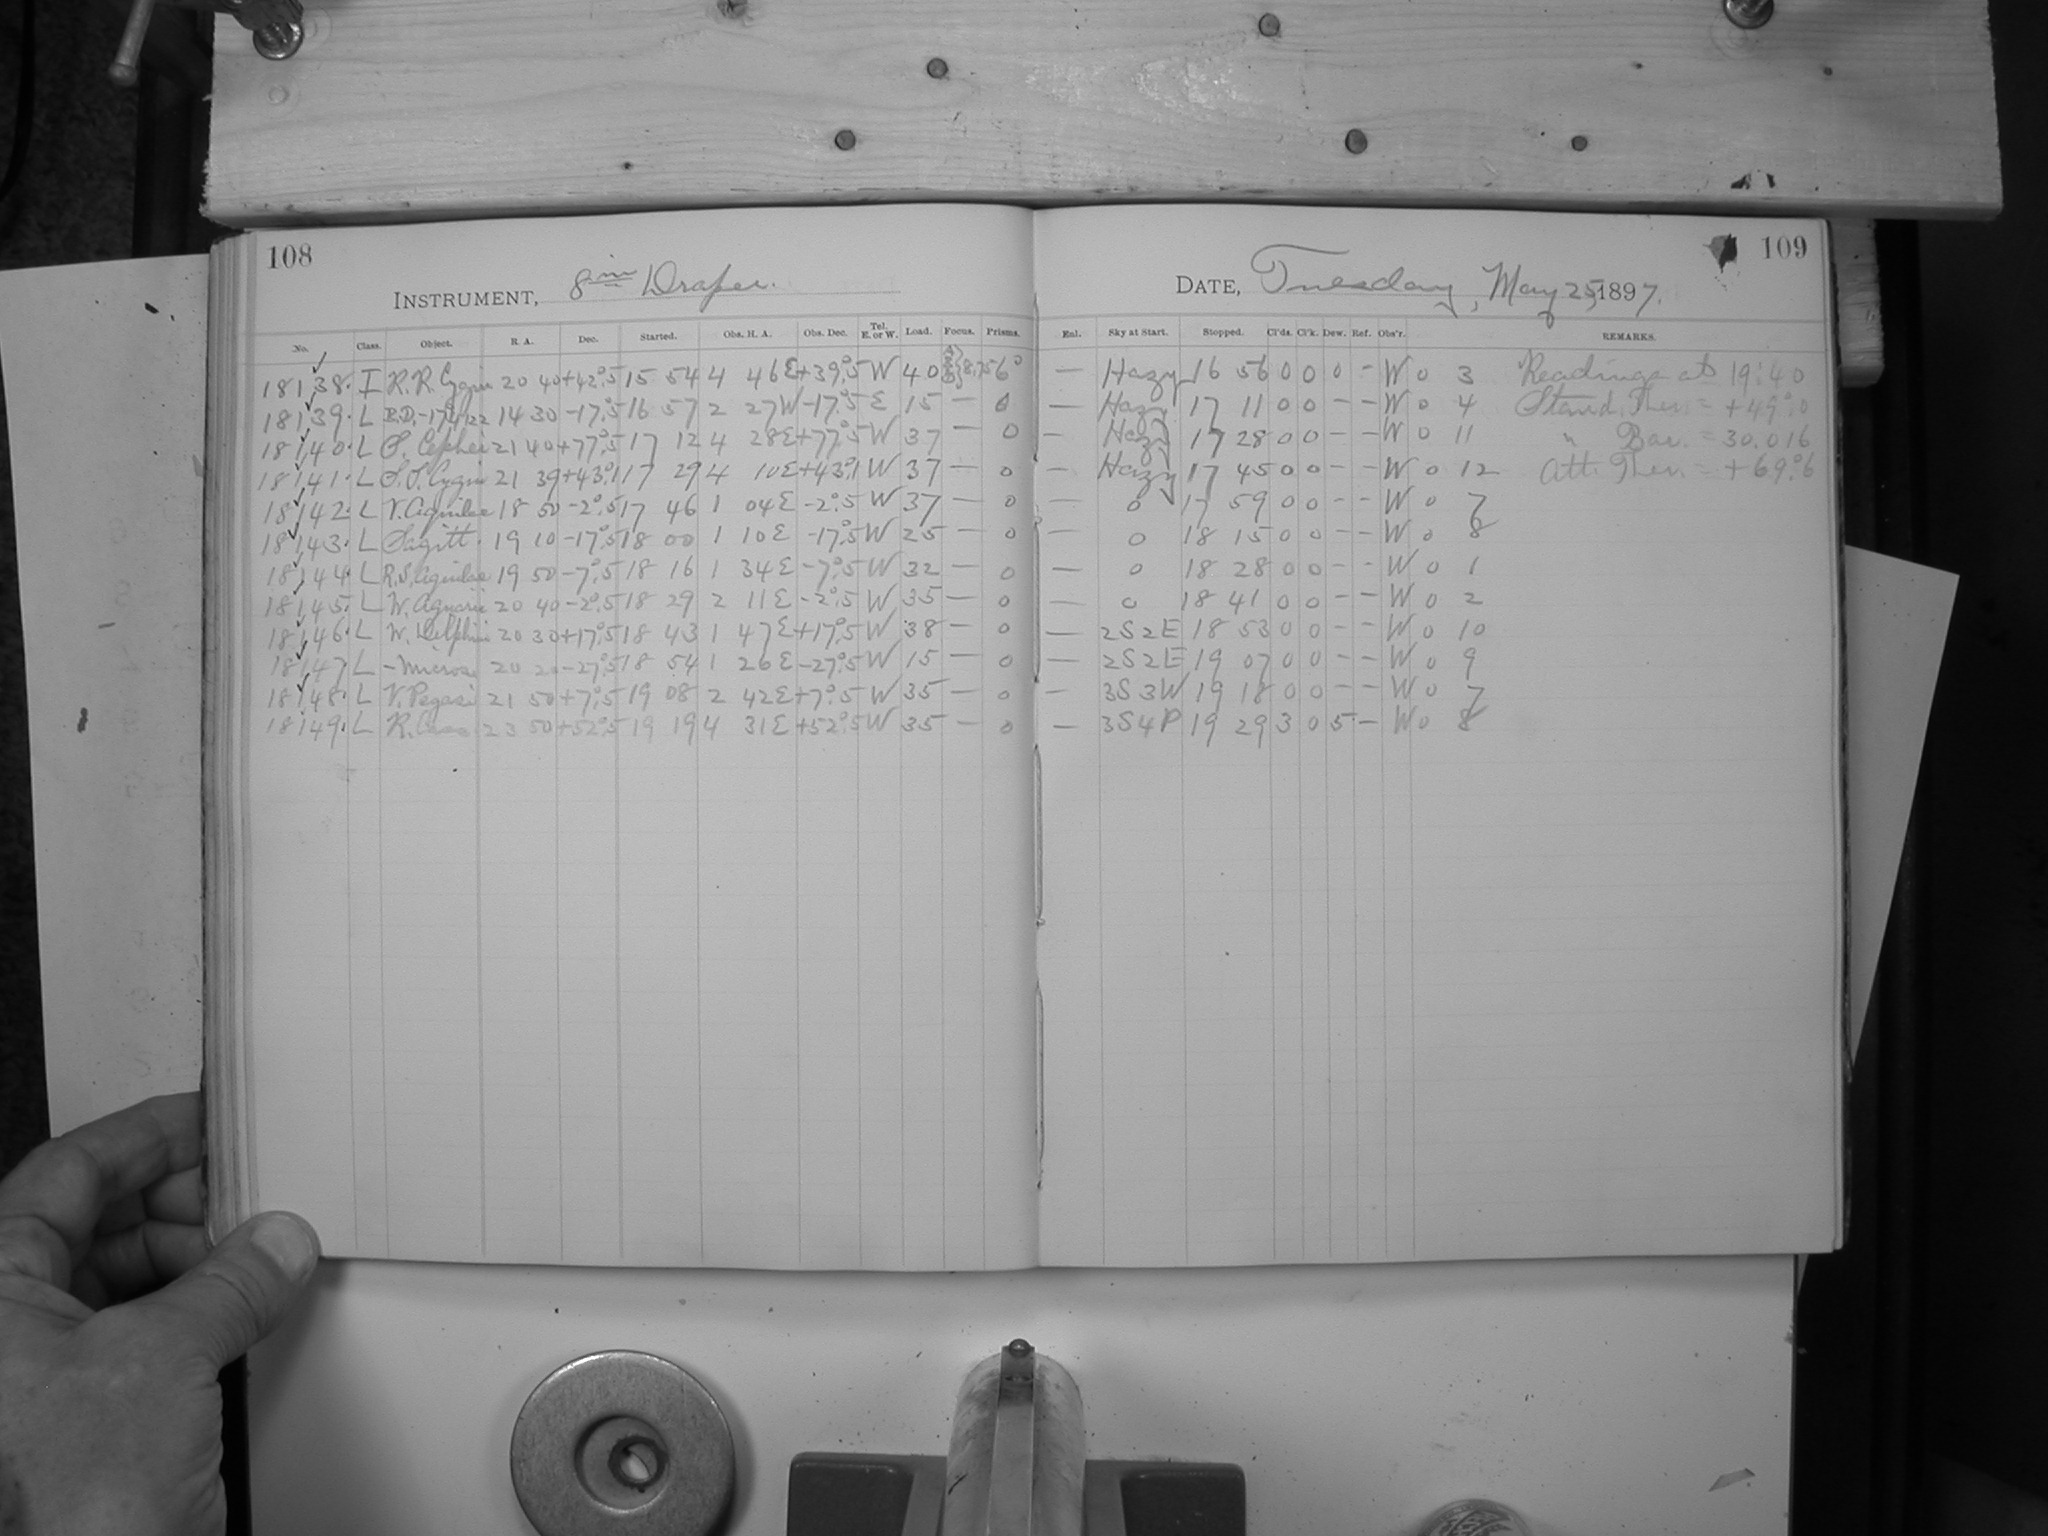 108
INSTRUMENT, 8 in Draper.
No. Class. Object. R. A. Dec. Started. Obs. H. A. Obs. Dec. Tel. E. or W. Load. Focus. Prisms.
18138. I R.R. Cygni 20 40 +42°.5 15 54 4 46E +39°.5 W 40 8.75 6°
18139. L B.D.-17° 4122 14 30 -17°.5 16 57 2 27W -17°.5 E 15 — 0
18140. L S. Cephei 21 40 +77°.5 17 12 4 28E +77°.5 W 37 — 0
18141. L S.S. Cygni 21 39 +43°.1 17 29 4 10E +43°.1 W 37 — 0
18142. L V. Aquilae 18 50 -2°.5 17 46 1 04E -2°.5 W 37 — 0
18143. L Sagitt. 19 10 -17°.5 18 00 1 10E -17°.5 W 25 — 0
18144. L R.S. Aquilae 19 50 -7°.5 18 16 1 34E -7°.5 W 32 — 0
18145. L W. Aquarii 20 40 -2°.5 18 29 2 11E -2°.5 W 35 — 0
18146. L W. Delphini 20 30 +17°.5 18 43 1 47E +17°.5 W 38 — 0
18147 L — Microsc 20 20 -27°.5 18 54 1 26E -27°.5 W 15 — 0
18148. L V. Pegasi 21 50 +7°.5 19 08 2 42E +7°.5 W 35 — 0
18149. L R. Cass 23 50 +52°.5 19 19 4 31E +52°.5 W 35 — 0
109
DATE, Tuesday, May 25, 1897.
Enl. Sky at Start. Stopped. Cl'ds. Cl'k. Dew. Ref. Obs'r. REMARKS.
— Hazy 16 56 0 0 0 - W 0 3 Readings at 19:40
— Hazy 17 11 0 0 - - W 0 4 Stand. Ther = +49°.0
— Hazy 17 28 0 0 - - W 0 11 " Bar. = 30.016
— Hazy 17 45 0 0 - - W 0 12 Att. Ther = +69°.6
— 0 17 59 0 0 - - W 0 7
— 0 18 15 0 0 - - W 0 8
— 0 18 28 0 0 - - W 0 1
— 0 18 41 0 0 - - W 0 2
— 2S2E 18 53 0 0 - - W 0 10
— 2S2E 19 07 0 0 - - W 0 9
— 3S3W 19 18 0 0 - - W 0 7
— 3S4P 19 29 3 0 5 - W 0 8